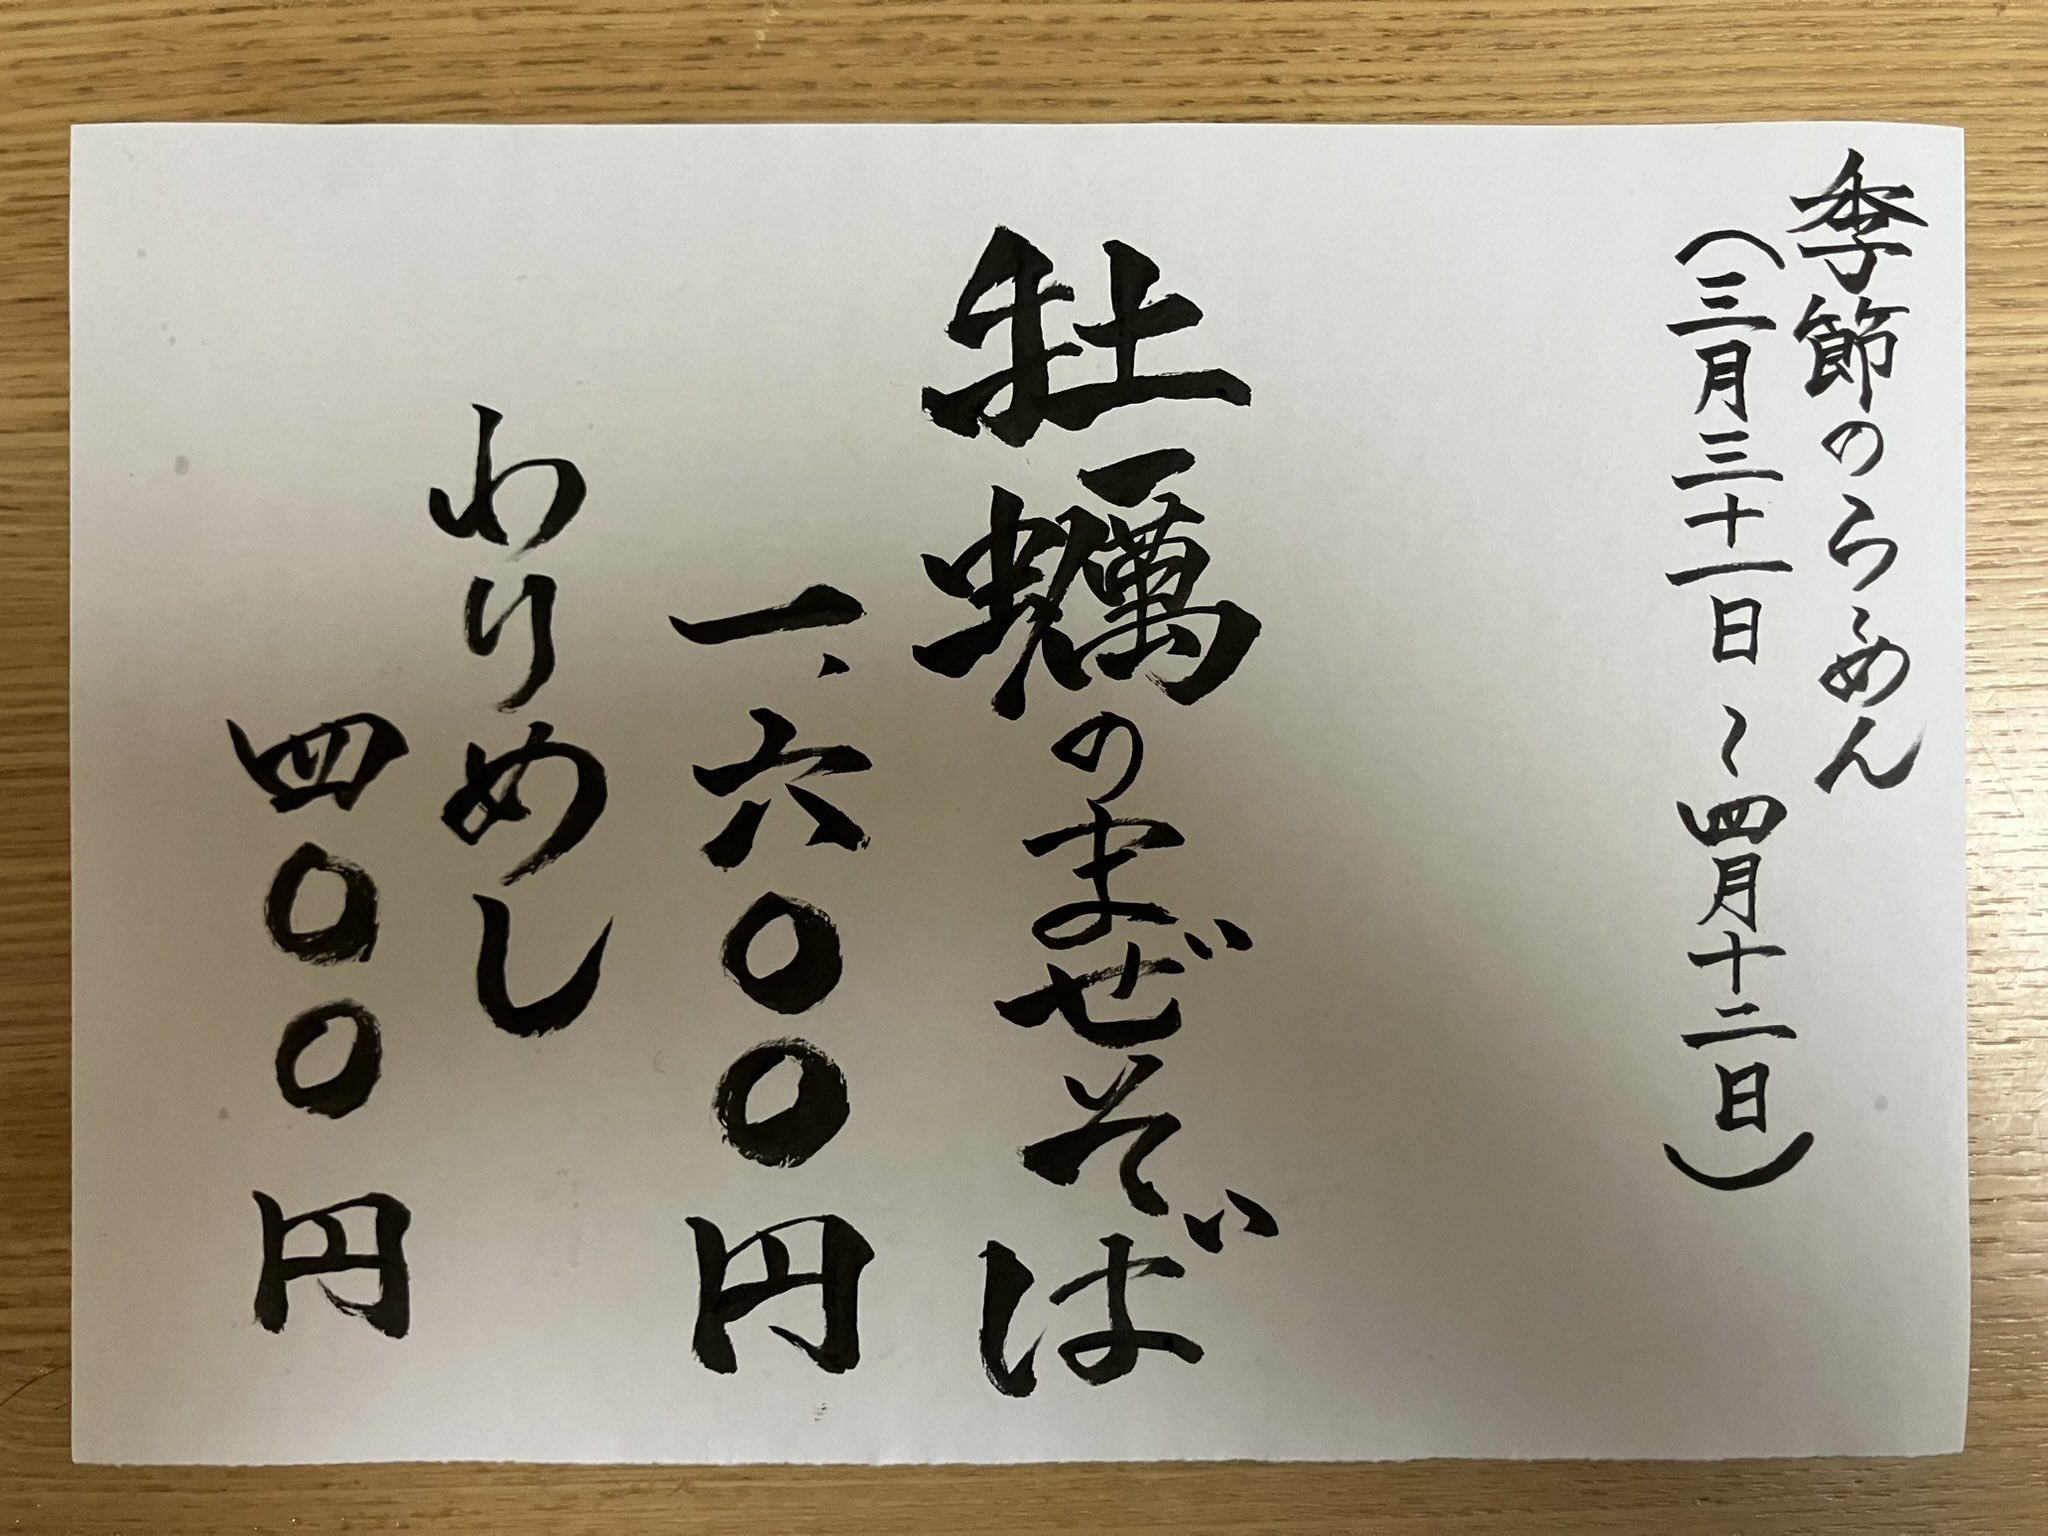 季節のらーめん
（三月三十一日～四月十二日）
牡蠣のまぜそば
一、六〇〇円
わりめし
四〇〇円